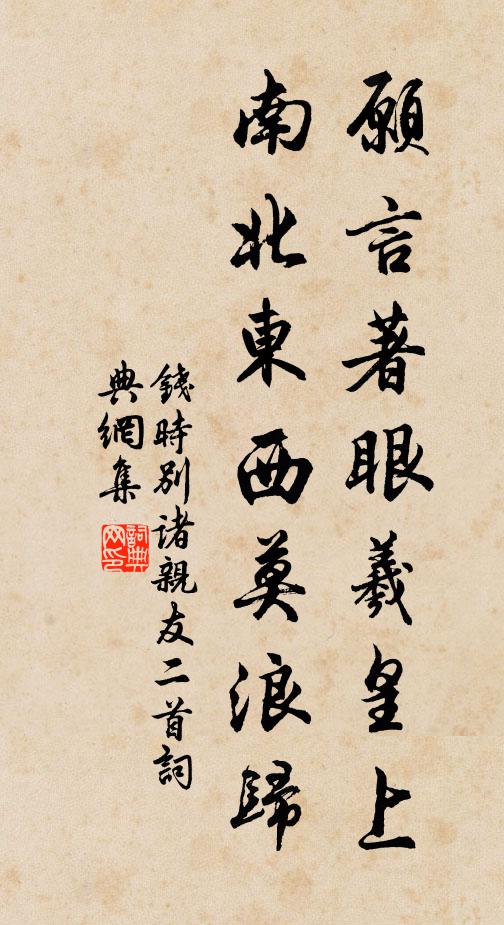 願言著眼羲皇上
南北東西莫浪歸
錢時別諸親友二首詞
典網集
詞典
网印